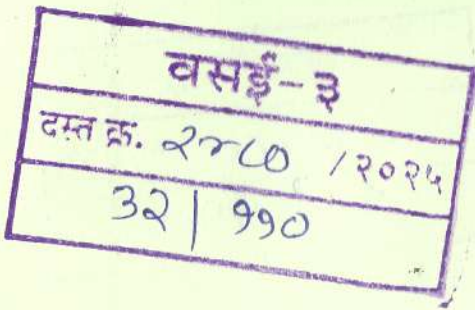 वसई-३
दस्त क्र. २४८० /२०२५
३२ | ११०